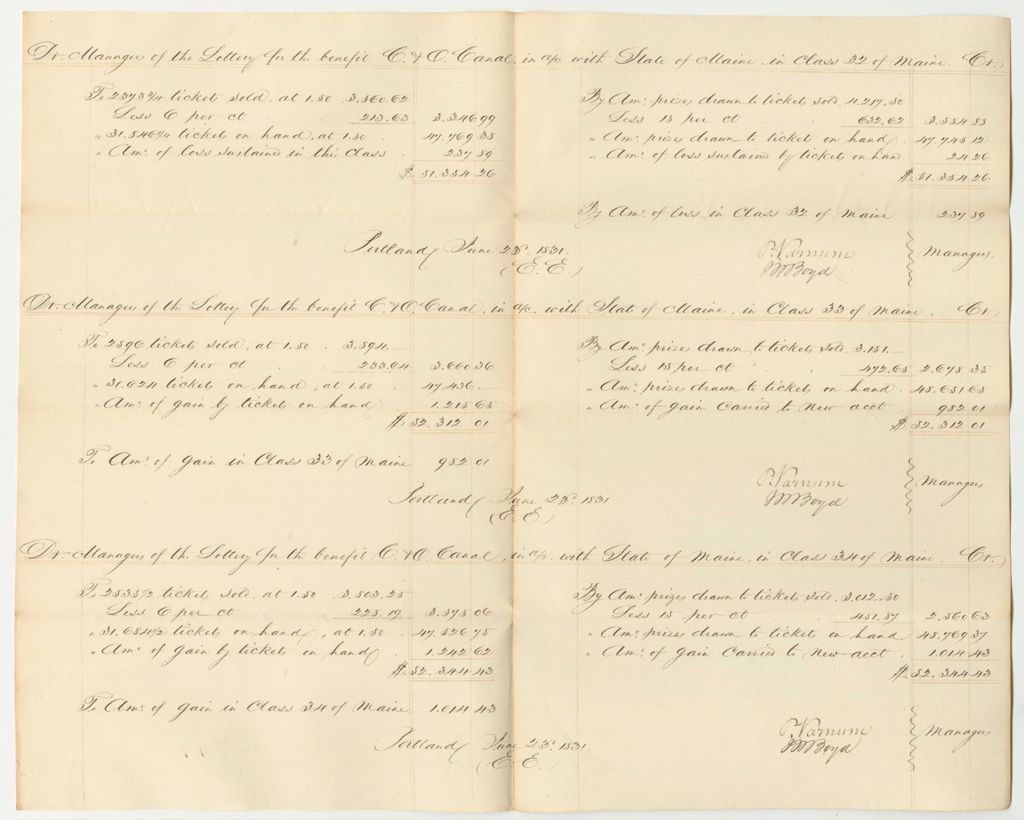 Dr. Managers of the Lottery for the benefit C. & O. Canal, in a/c with State of Maine, in Class 32 of Maine. Cr.
To 2373 3/4 tickets sold, at 1.50 . 3.560.62
Less 6 per ct 213.63 3.346 99
" 31.846 1/4 tickets on hand, at 1.50 . 47.769 38
" Amt. of loss sustained in this Class . 237 89
$. 51.354 26
By Amt. prizes drawn to tickets sold 4.217.50
Less 15 per ct 632.62 3.584 88
" Amt. prizes drawn to tickets on hand . 47.745 12
" Amt. of loss sustained by tickets on hand 24 26
$. 51.354 26
By Amt. of loss in Class 32 of Maine 237 89
Portland June 23d. 1831.
(E. E.)
P. Varnum
JM Boyd
Managers.
Dr. Managers of the Lottery for the benefit C. & O. Canal, in a/c. with State of Maine, in Class 33 of Maine. Cr.
To 2596 tickets sold, at 1.50 . 3.894.
Less 6 per ct 233.64 3.660 36
" 31.624 tickets on hand, at 1.50 . 47.436
" Amt. of gain by tickets on hand 1.215 65
$. 52.312 01
By Amt. prizes drawn to tickets sold, 3.151.
Less 15 per ct 472.65 2.678 35
" Amt. prizes drawn to tickets on hand . 48.651 65
" Amt. of gain Carried to New acct 982 01
$. 52.312 01
To Amt. of gain in Class 33 of Maine 982 01
Portland June 23d. 1831
(E. E.)
P. Varnum
JM Boyd
Managers.
Dr. Managers of the Lottery for the benefit C. & O. Canal, in a/c. with State of Maine, in Class 34 of Maine. Cr.
To 2535 1/2 tickets sold, at 1.50 3.803.25
Less 6 per ct 228.19 3.575 06
" 31.684 1/2 tickets on hand, at 1.50 . 47.526 75
" Amt. of gain by tickets on hand 1.242 62
$. 52.344 43
By Amt. prizes drawn to tickets sold, 3.012.50
Less 15 per ct 451.87 2.560 63
" Amt. prizes drawn to tickets on hand 48.769 37
" Amt. of gain Carried to new acct . 1.014 43
$. 52.344 43
To Amt. of gain in Class 34 of Maine 1.014 43
Portland June 23d. 1831
(E. E.)
P. Varnum
JM Boyd
Managers